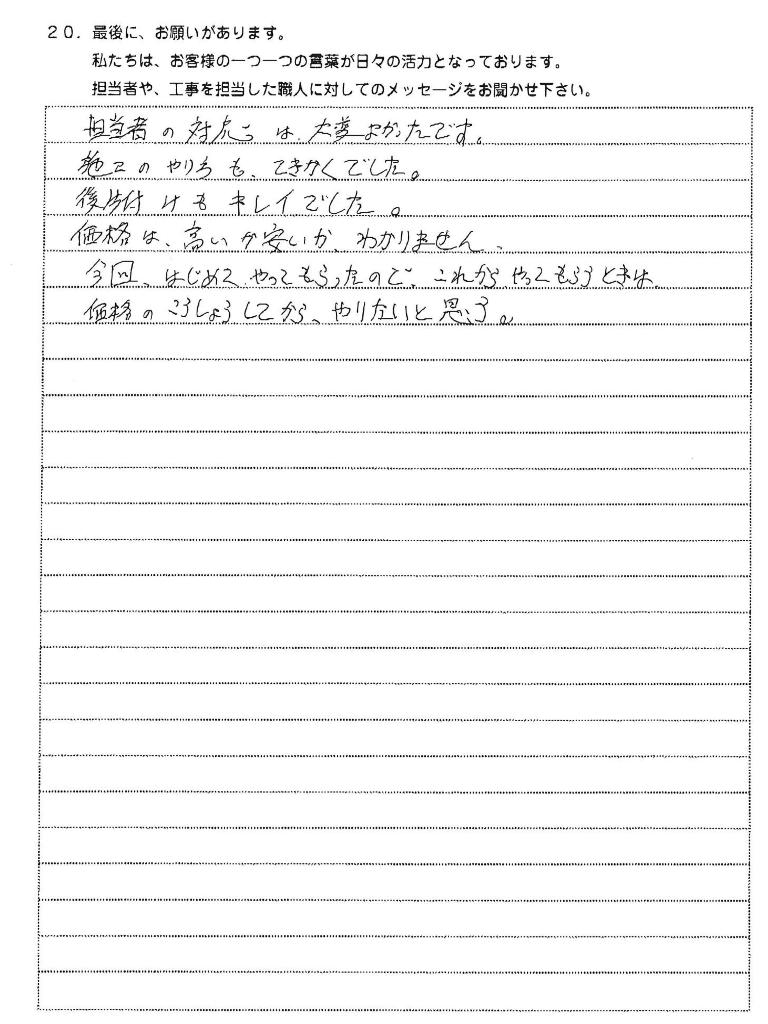 20. 最後に、お願いがあります。
私たちは、お客様の一つ一つの言葉が日々の活力となっております。
担当者や、工事を担当した職人に対してのメッセージをお聞かせ下さい。
担当者の対応は、大変よかったです。
施工のやり方も、てきかくでした。
後片付けもキレイでした。
価格は、高いか安いか、わかりません、
今回、はじめてやってもらったので、これからやってもらうときは、
価格のこうしょうしてから、やりたいと思う。